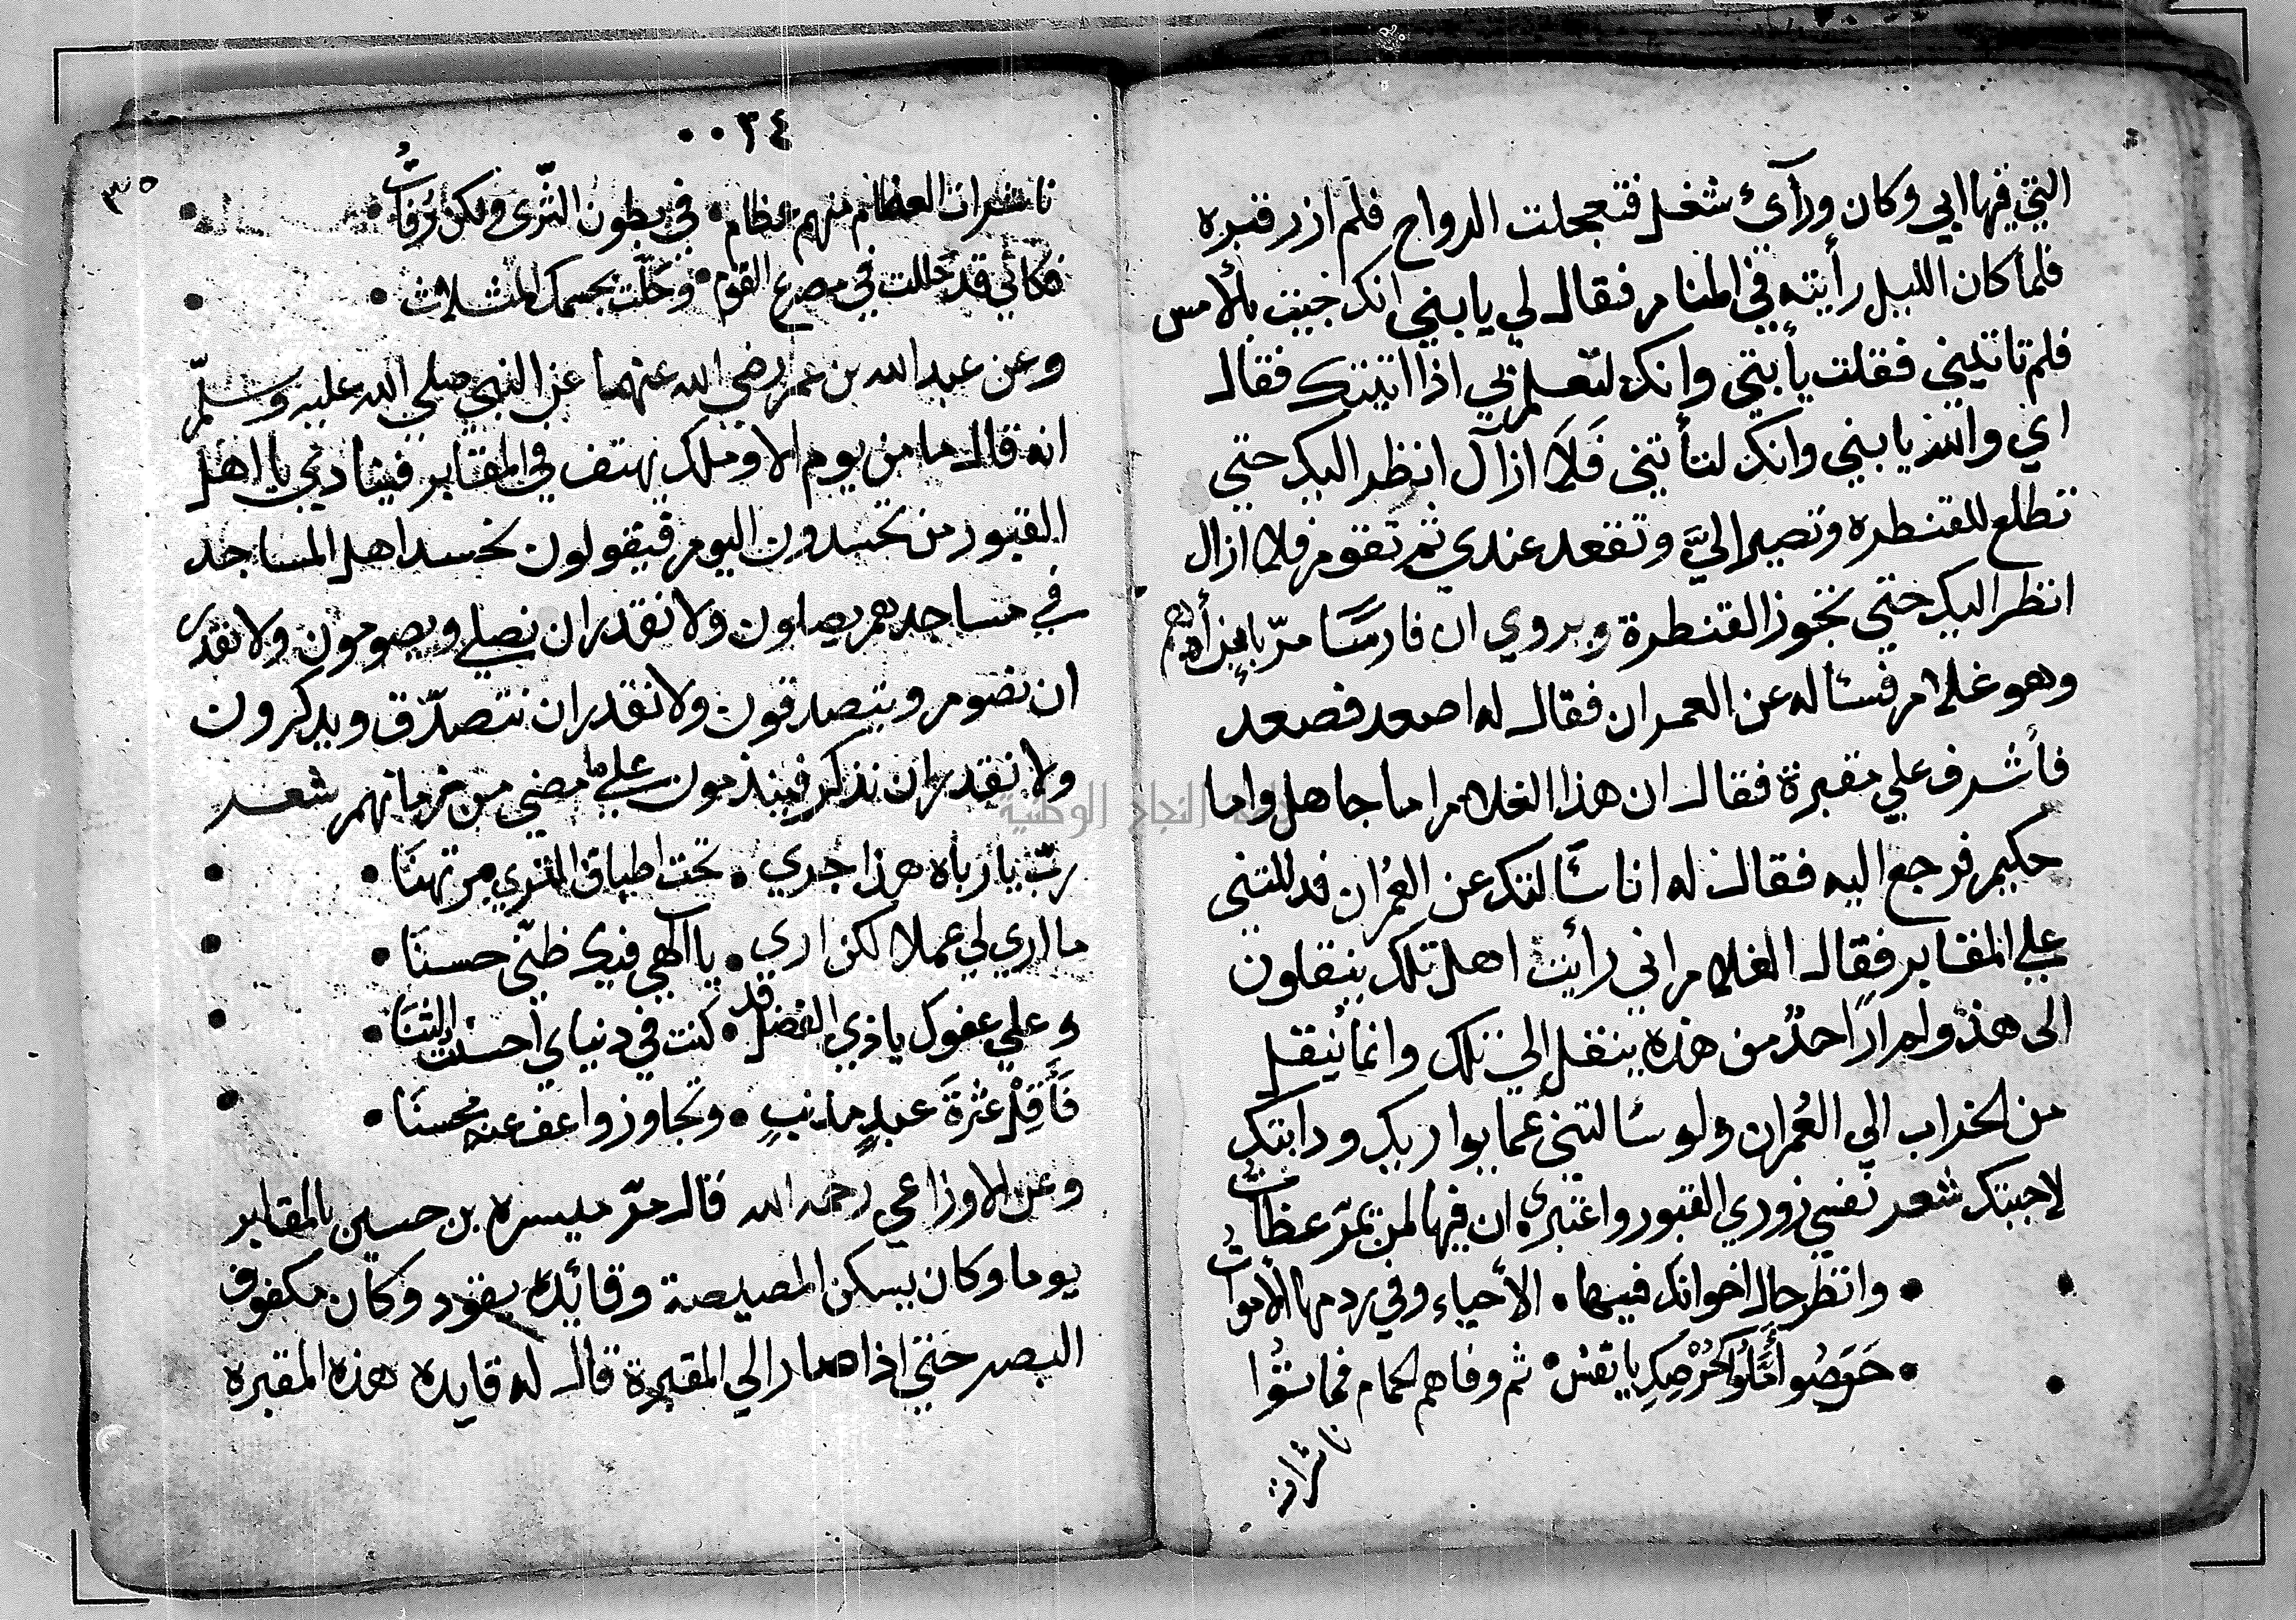 التي فيها ابي وكان ورآى شغل فتعجلت الرواح فلم ازر قبره
فلما كان الليل رأيته في المنام فقال لي يا بني انك جيت بالامس
فلم تاتيني فقلت يأبتي وانك لتعلم بي اذا اتيتك فقال
اي والله يا بني وانك لتأتني فَلَا ازال انظر اليك حتى
تطلع للقنطره وتصير اليَّ وتقعد عندي ثم تقوم فلا ازال
انظر اليك حتي تجوز القنطرة ويروي ان فارسًا مرّ بابن أدهم
وهو غلام فسأله عن العمران فقال له اصعد فصعد
فأشرف علي مقبرة فقال ان هذا الغلام اما جاهل واما
حكيم فرجع اليه فقال له انا سألتك عن العُمران فدللتني
علي المقابر فقال الغلام اني رأيت اهل تلك ينقلون
الى هذه ولم ارَ احدٌ من هذه ينقل إلي تلك وانما يُنقل
من الخراب الي العُمران ولو سألتني عما يواريك ودابتك
لاجبتك شعر نفسي زوري القبور واعتبري ان فيها لمن يمرّ عظاتُ
• وانظر حال اخوانك فيها • الأحياء وفي ردمها الأمواتُ
• حَرَصُوا أَمَّلُوا كَحُرْصِكِ يا نفسُ • ثم وفاهم الحمام فماتوُا
ناشرات
٠٠٣٤
٣٥
ناشرات العظائم منهم عظام • في بطون الثّرى ولكن رُفاتُ •
فكأني قد حَللت في مصرع القوم • وحَلَّت بجسمك المثلاث •
وعن عبد الله بن عمر رضي الله عنهما عن النبي صلي الله عليه وسلّم
انه قال ما من يوم الا وملك يهتف في المقابر فينادي يا اهل
القبور من تحسدون اليوم فيقولون نحسد اهل المساجد
في مساجدهم يصلون ولا نقدر ان نصلي ويصومون ولا نقدر
ان نصوم ويتصدقون ولا نقدر ان نتصدّق ويذكرون
ولا نقدر ان نذكر فيندمون علي ما مضي من زمانهم شعر
ربّ يا رباه هذا جدي • تحت اطباق الثري مرتهنَا •
ما اري لي عملا لكن اري • يا الهي فيك ظنّي حسنَا •
وعلي عفوك يا ذي الفضل قد • كنت في دنياي احسنت الثنَا •
فَأَقِلْ عثرةَ عبدٍ مذنبٍ • وتجاوز واعف عنه محسنَا •
وعن الاوزاعي رحمه الله قال مرّ ميسره بن حسين بالمقابر
يوما وكان يسكن المصيصة وقائدٌ يقود وكان مكفوف
البصر حتي اذا صار الي المقبرة قال له قايده هذه المقبره